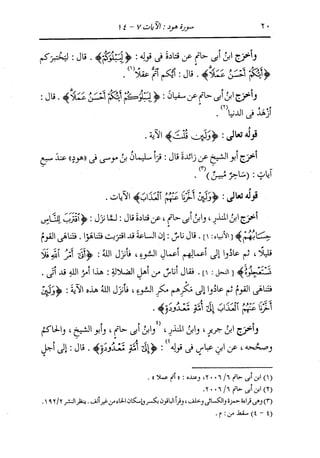 ٢٠ سورة هود : الآيات ٧ - ١٤
وأخرج ابنُ أبى حاتم عن قتادةَ فى قولِه : ﴿ لِيَبْلُوَكُمْ ﴾ . قال : ليَختبركم
﴿ أَيُّكُمْ أَحْسَنُ عَمَلًا ﴾ . قال : أيُّكم أتمُّ عقلًا(١) .
وأخرج ابنُ أبى حاتم عن سفيانَ : ﴿ لِيَبْلُوَكُمْ أَيُّكُمْ أَحْسَنُ عَمَلًا ﴾ . قال :
أزهَدُ فى الدنيا(٢) .
قولُه تعالى : ﴿ وَلَئِن قُلْتَ ﴾ الآية .
أخرج أبو الشيخِ عن زائدةَ قال : قرَأ سليمانُ بنُ موسى فى «هودٍ» عندَ سبعِ
آياتٍ : (سَاحِرٌ مُّبِينٌ)(٣) .
قولُه تعالى : ﴿ وَلَئِنْ أَخَّرْنَا عَنْهُمُ ٱلْعَذَابَ ﴾ الآيات .
أخرج ابنُ المنذرِ ، وابنُ أبى حاتم ، عن قتادةَ قال : لمَّا نزَل : ﴿ ٱقْتَرَبَ لِلنَّاسِ
حِسَابُهُمْ ﴾ [الأنبياء : ١] . قال ناسٌ : إن الساعةَ قد اقترَبت فتناهَوْا . فتناهَى القومُ
قليلًا ، ثم عادُوا إلى أعمالِهم أعمالِ السُّوءِ ، فأنزَل اللهُ : ﴿ أَتَىٰٓ أَمْرُ ٱللَّهِ فَلَا
تَسْتَعْجِلُوهُ ﴾ [النحل : ١] . فقال أناسٌ من أهلِ الضلالةِ : هذا أمرُ اللهِ قد أتَى .
فتناهَى القومُ ثم عادُوا إلى مَكرِهم مكرِ السُّوءِ ، فأنزَل اللهُ هذه الآيةَ : ﴿ وَلَئِنْ
أَخَّرْنَا عَنْهُمُ ٱلْعَذَابَ إِلَىٰٓ أُمَّةٍ مَّعْدُودَةٍ ﴾ .
وأخرج ابنُ جريرٍ ، وابنُ المنذرِ ، (٤وابنُ أبى حاتم ، وأبو الشيخِ ، والحاكمُ
وصحَّحه ، عن ابنِ عباسٍ فى قولِه٤) : ﴿ إِلَىٰٓ أُمَّةٍ مَّعْدُودَةٍ ﴾ . قال : إلى أجلٍ
(١) ابن أبى حاتم ٦/ ٢٠٠٦، وعنده : « أتم عملا » .
(٢) ابن أبى حاتم ٦/ ٢٠٠٦.
(٣) وهى قراءة حمزة والكسائى وخلف ، وقرأ الباقون بكسر وإسكان الحاء من غير ألف . ينظر النشر ٢/ ١٩٢.
(٤ - ٤) سقط من : م .